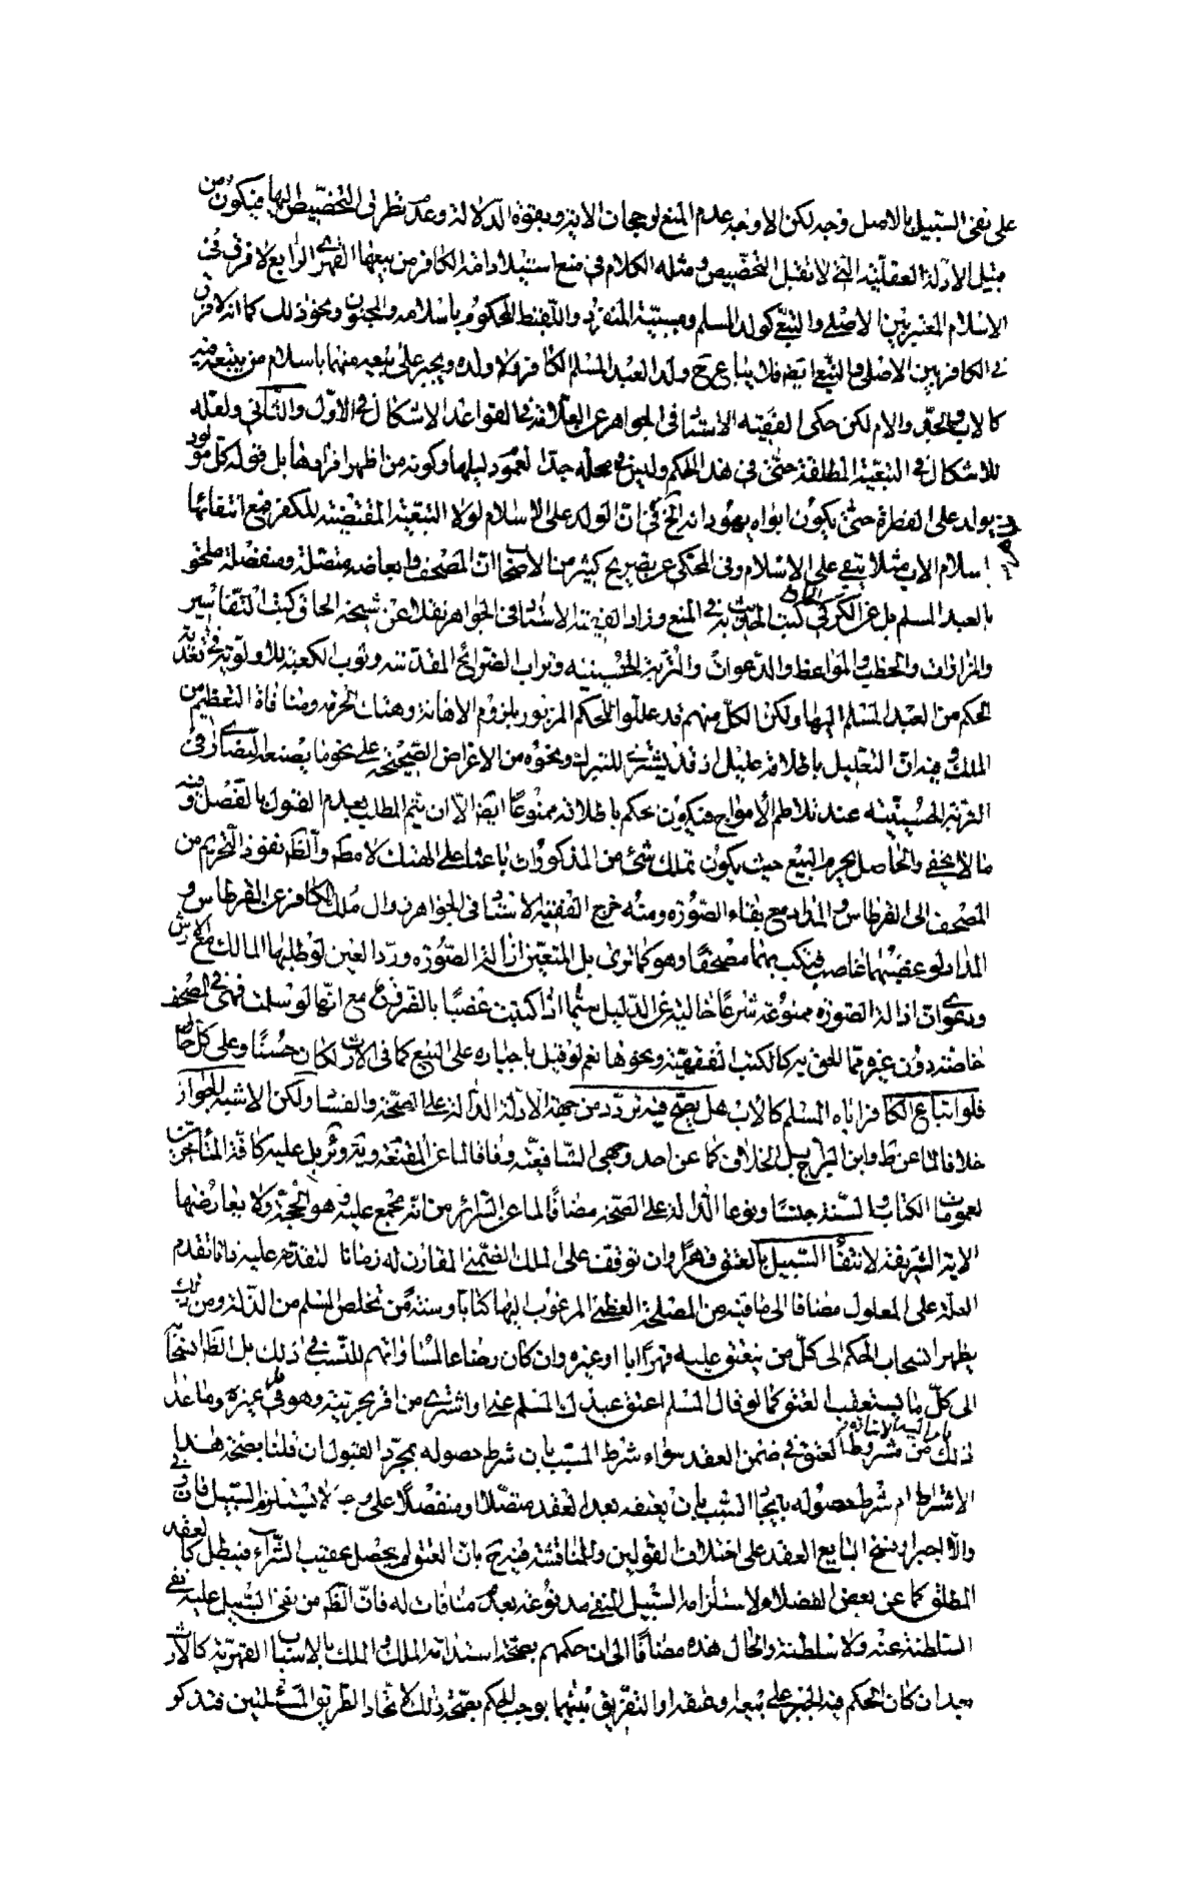 على نفى السبيل بالاصل وجه لكن الاوجه عدم المنع لوجحان الاية وبقوة الدلالة وعدم تطرق التخصيص اليها فيكون من
قبيل الادلة العقلية التى لا تقبل التخصيص ومثله الكلام فى منع استيلاد امة الكافر من بيعها القهرى الرابع لا فرق فى
الاسلام المعتبر بين الاصلى والتبعى كولد المسلم ومسبيّة المنفرد واللقيط المحكوم باسلامه والمجنون ونحو ذلك كما انه لا فرق
فى الكافر بين الاصلى والتبعى ايضا فلا يباع ولد العبد المسلم الكافر ولا ولده ويجبر على بيعه منهما باسلام من يتبعه فيه
كالاب والجد والام لكن حكى الفقيه الاستاد فى الجواهر عن العلامة فى القواعد الاشكال فى الاول والثانى ولعله
للاشكال فى التبعية المطلقة حتى فى هذا الحكم وليس فى محله جدا لعموم دليلها وكونه من اظهر افرادها بل قوله كل مولود
يولد على الفطرة حتى يكون ابواه يهودانه الخ فى ان الولد على الاسلام لولا التبعية المقتضية للكفر فمع انتفائها
باسلام الاب مثلا يبقى على الاسلام وفى المحكى عن تصريح كثير من الاصحاب ان المصحف وابعاضه متصلة ومنفصلة ملحق
بالعبد المسلم بل عن الكركى كتب الحديث فى المنع وزاد الفقيه الاستاد فى الجواهر نقلا عن شيخه الحاق كتب التفاسير
والمزارات والخطب والمواعظ والدعوات والتربة الحسينيه وتراب الضرائح المقدسة وثوب الكعبة للاولوية فى تعدية
الحكم من العبد المسلم اليها ولكن الكل منهم قد عللوا الحكم المزبور بلزوم الاهانة وهتك الحرمة ومنافاة التعظيم من
الملك وفيه ان التعليل باطلاقه عليل اذ قد يشترى للتبرك ونحوه من الاغراض الصحيحة على نحو ما يصنعه النصارى فى
التربة الحسينية عند تلاطم الامواج فيكون الحكم باطلاقه ممنوعا ايضا الا ان يتم المطلب بعدم القول بالفصل وفيه
ما لا يخفى والحاصل يحرم البيع حيث يكون تملك شئ من المذكورات باعثا على الهتك لا مط والظ نفوذ التحريم من
المصحف الى القرطاس والمداد مع بقاء الصورة ومنه خرج الفقيه الاستاد فى الجواهر زوال ملك الكافر عن القرطاس و
المداد لو غصبهما غاصب فيكتب بهما مصحفا وهو كما ترى بل المتعين ازالة الصورة ورد العين لو طلبها المالك مع الارش
ودعوى ان ازالة الصورة ممنوعة شرعا خالية عن الدليل سيما اذا كتبت غصبا بالقرض مع انها لو سلمت فهى فى المصحف
خاصة دون غيره مما للحق به كالكتب الفقهية ونحوها نعم لو قيل باجباره على البيع كما فى الارث لكان حسنا وعلى كل حال
فلو ابتاع الكافر اباه المسلم كالاب هل يصح فيه تردد من جهة الادلة الدالة على الصحة والفساد ولكن الاشبه الجواز
خلافا لما عن ط وابن البراج بل الخلاف كما عن احد وجهى الشافعية وفاقا لما عن المقنعة وية وئر بل عليه كافة المتاخرين
لعمومات الكتاب والسنة جنسا ونوعا الدالة على الصحة مضافا لما عن السرائر من انه مجمع عليه وهو الحجة ولا يعارضها
الاية الشريفة لانتفاء السبيل بالعتق قهرا وان توقف على الملك الضمنى المقارن له زمانا لتقدمه عليه ذاتا تقدم
العلة على المعلول مضافا الى ما فيه من المصلحة العظمى المرغوب اليها كتابا وسنة من تخلص المسلم من الذلة ومن ذلك
يظهر انسحاب الحكم الى كل من ينعتق عليه قهرا ابا او غيره وان كان رضاعا لمساواتهم للنسب فى ذلك بل الظ انسحابه
الى كل ما يستعقب العتق كما لو قال المسلم اعتق عبدك المسلم عنى او اشترى من اقر بحريته وهو فى غيره وما عدا
ذلك من مشروط العتق فى ضمن العقد سواء شرط المسبب بان شرط حصوله بمجرد القبول ان قلنا بصحة هذا
الاشتراط ام شرط حصوله بايجاد السبب بان يعتقه بعد العقد متصلا او منفصلا على وجه لا يستلزم السبيل فان فى
والا اجبر او فسخ البايع العقد على اختلاف القولين والمناقشة فيه بان العتق لم يحصل عقيب الشراء فيبطل كالعقد
المطلق كما عن بعض الفضلاء ولاستلزامه السبيل المنفى مدفوعة بعدم منافات له فان الظ من نفى السبيل عليه نفى
السلطنة عنه ولا سلطنة والحال هذه مضافا الى ان حكمهم بصحة استدامة الملك والملك بالاسباب القهرية كالارث
بعد ان كان الحكم فيه الجبر على بيعه وعتقه او التفريق بينهما يوجب الحكم بصحة ذلك لاتحاد الطريق المسئلتين فتذكر